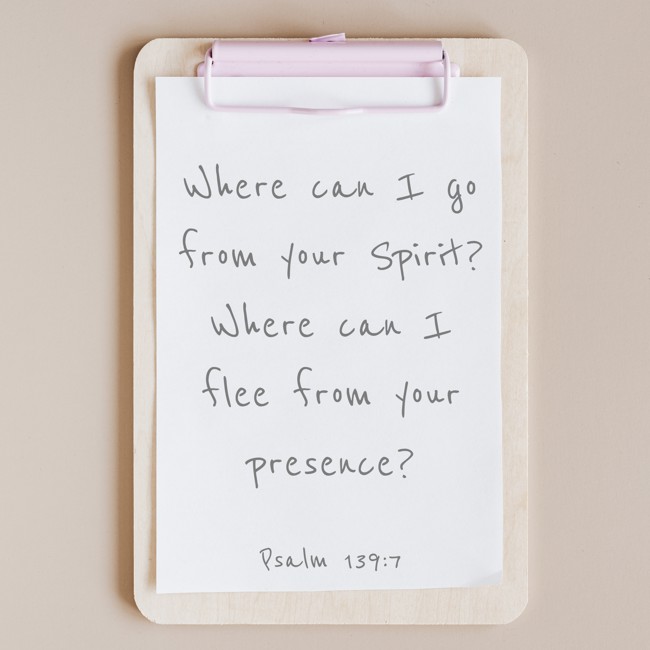 Where can I go
from your Spirit?
Where can I
flee from your
presence?
Psalm 139:7